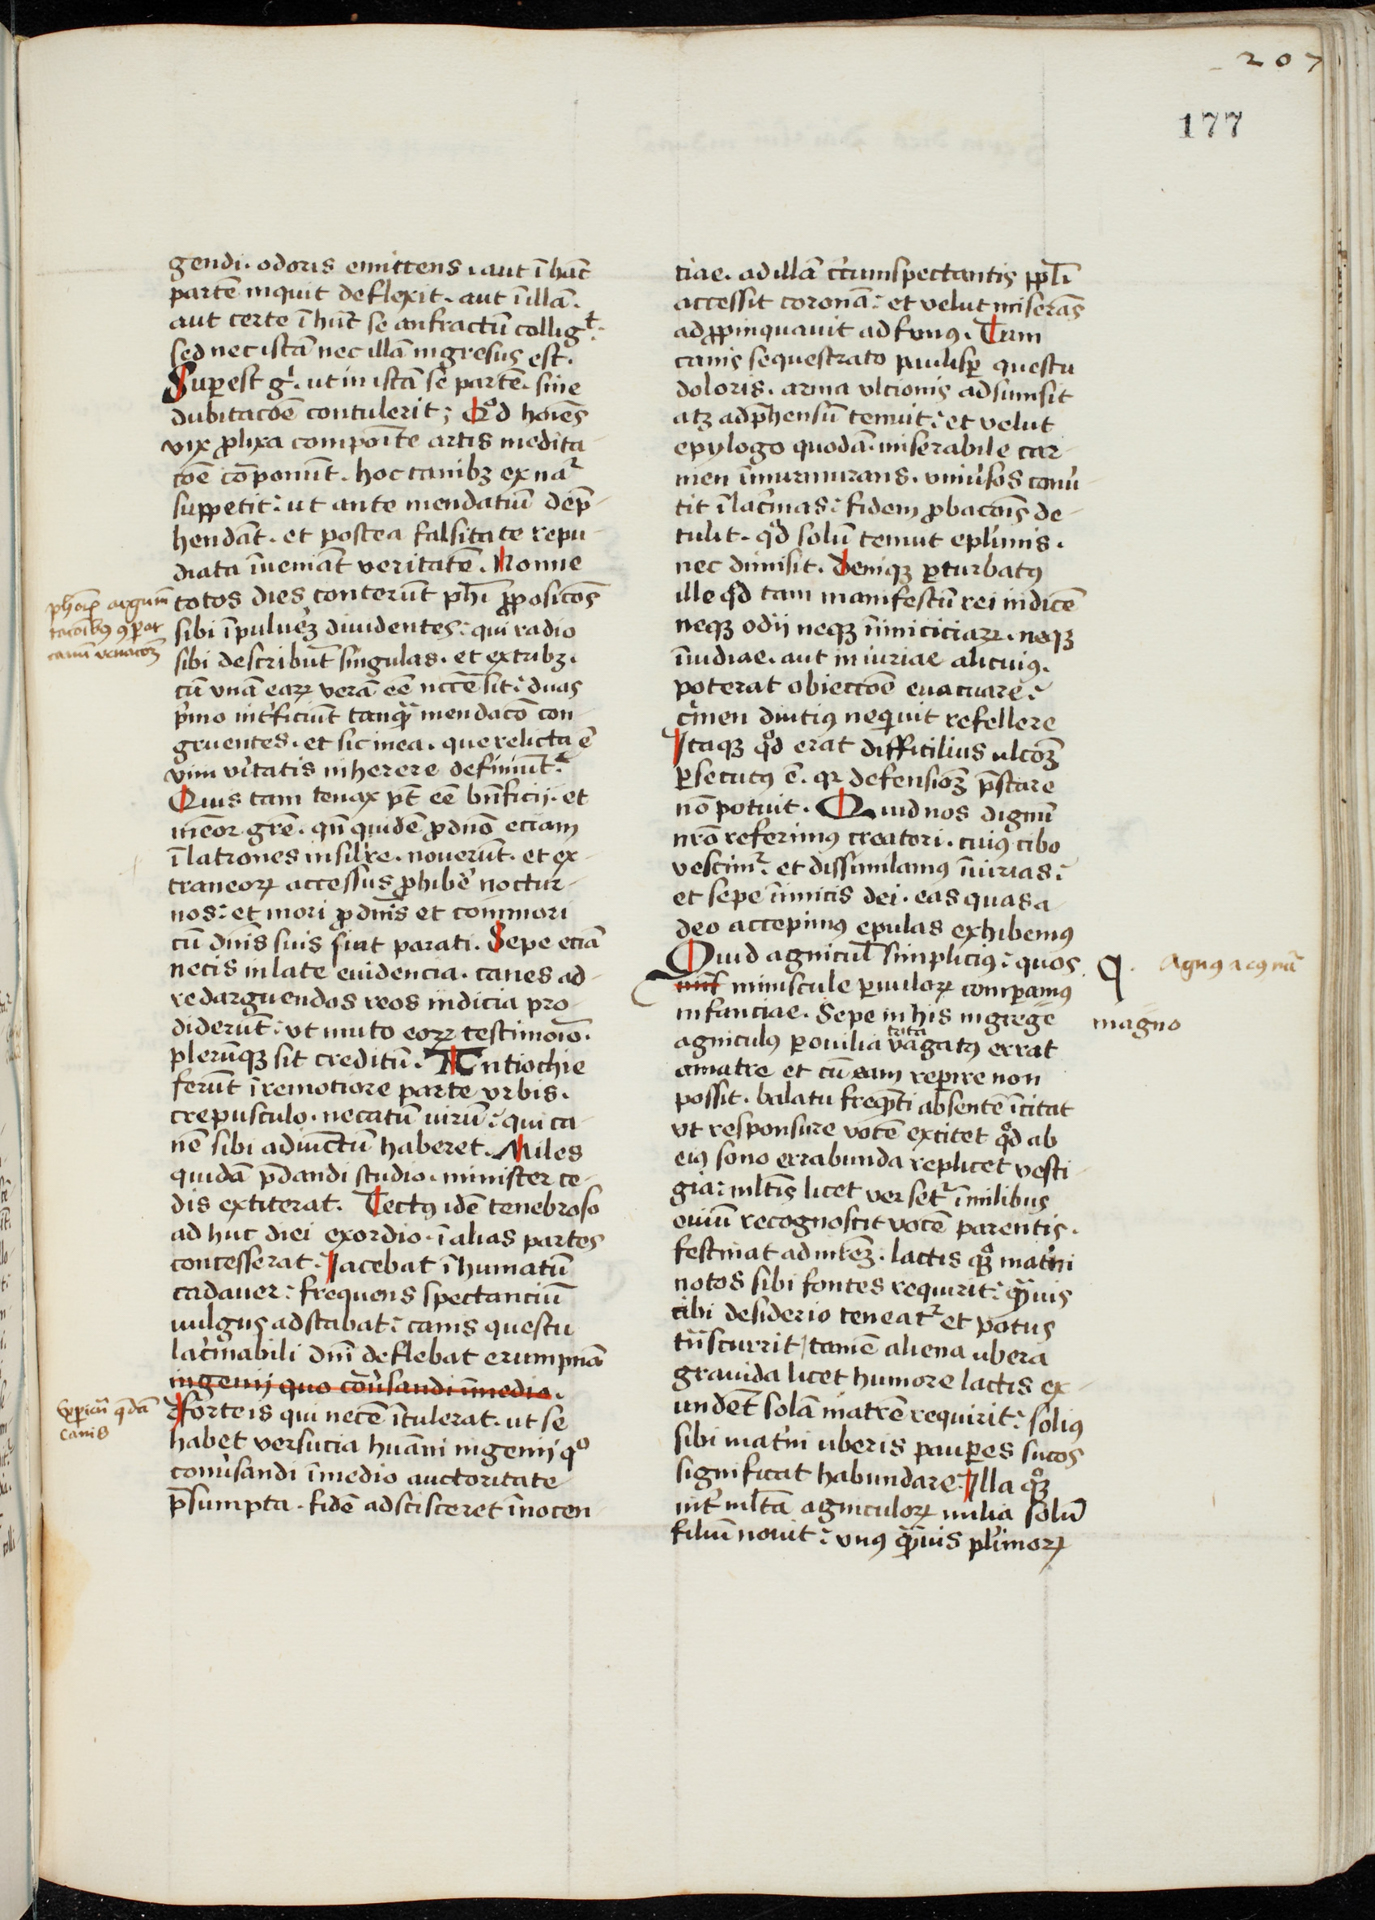 207
177
gendi. odoris emittens. aut ī hāc
partē inquit deflexit. aut ī illā.
aut certe ī hūc se anfractū colligͭ.
sed nec istā nec illā ingresus est.
Superest gͥ. ut in istā se partē. sine
dubitacōe contulerit; Qͦd hoīes
vix plixa compoīte artis medita-
cōe cōponūt. hoc canibꝫ ex naͬ
suppetit: ut ante mendatiū dep̄-
hendāt. et postea falsitate repu-
diata īueniāt veritatē. Nonne
phōꝝ argum
totos dies conterūt phī ppositōes
tacōibꝰ ꝯpat
sibi ī puluēꝫ diuidentes: qui radio
canū venacōꝫ
sibi describūt singulas. et ex tribꝫ.
cū vnā eaꝝ verā eē nccē sit: duas
pͥmo intˀficiūt tanqͣ mendacō con-
gruentes. et sic in ea. que relicta ē
vim vˀitatis inherere definiūt:
Quis tam tenax pt̄ eē bn̄ficij. et
mēor grē. qn̄ quidē p dnō eciam
ī latrones insilˀre. nouerūt. et ex-
traneoꝝ accessus phibeˀ noctur-
nos: et mori p dnīs et commori
cū dnīs suis sint parati. Sepe eciā
necis inlate euidencia. canes ad-
redarguendos reos indicia pro-
diderūt: vt muto eoꝝ testimoīo.
plerūqꝫ sit creditū. Antiochie
ferūt ī remotiore parte vrbis.
crepusculo. necatū uirū: qui ca-
nē sibi adiūctū haberet. Miles
quidā p̄dandi studio. minister ce-
dis extiterat. Tectꝰ idē tenebroso
ad huc diei exordio. ī alias partes
concesserat: Jacebat īhumatū
cadauer: frequens spectanciū
uulgus adstabat: canis questu
lacͥmabili dnī deflebat erumpnā
ingenij quo cōuˀsandi ī medio.
canis
Forte is qui necē ītulerat. ut se
habet versucia humāni ingenij qͦ
conuˀsandi ī medio auctoritate
p̄sumpta. fidē adscisceret īnocen-
tiae. ad illā cͥcumspectantis ppl̄i
accessit coronā: et velut miserās
adppinquauit ad funꝰ. Tum
canis sequestrato paulisp questu
doloris. arma vlcionis adsumsit
atꝫ adp̄hensū tenuit: et velut
epylogo quodā. miserabile car-
men īmurmurans. vniuˀsos conuˀ-
tit ī lacͥmas: fidem pbacōis de-
tulit. qd̄ solū tenuit e plīmis.
nec dimisit. Deniqꝫ pturbatꝰ
ille qd̄ tam manifestū rei indicē
neqꝫ odij neqꝫ īimiciciaꝝ. neqꝫ
īuidiae. aut iniuriae alicuiꝰ.
poterat obiectōe euacuare:
cͥmen diutiꝰ nequit refellere
Itaqꝫ qͦd erat difficilius ulcōꝫ
psecutꝰ ē. qꝛ defensiōꝫ p̄stare
nō potuit. Quid nos dignū
nrō referimus creatori. cuius cibo
vescimͬ. et dissimilamus īiurias:
et sepe īimicis dei. eas quas a
deo accepimꝰ epulas exhibemus
Quid agnicul̄ simpliciꝰ: quos
Agnꝰ
minuscule puuloꝝ compamꝰ
infanciae. Sepe in his in grege
magno
agniculus p ouilia tota vagatꝰ errat
a matre et cū eam repire non
possit. balatu freqn̄ti absentē ī citat
vt responsure vocē excitet qͦd ab
eiꝰ sono errabunda replicet vesti-
gia: mltīs licet versetͬ ī milibus
ouiū recognoscit vocē parentis.
festinat ad mrēꝫ. lactis qͦꝫ matˀni
notos sibi fontes requirit: qͣuis
cibi desiderio teneatͬ et potus
tͣnscurrit / tamē aliena ubera
grauida licet humore lactis ex-
undēt solā matrē requirit: solius
sibi matˀni uberis paupes sucos
significat habundare: Illa qͦꝫ
intˀ mltā agniculoꝝ milia solū
filiū nouit: vnꝰ qͣuis pl̄imoꝝ